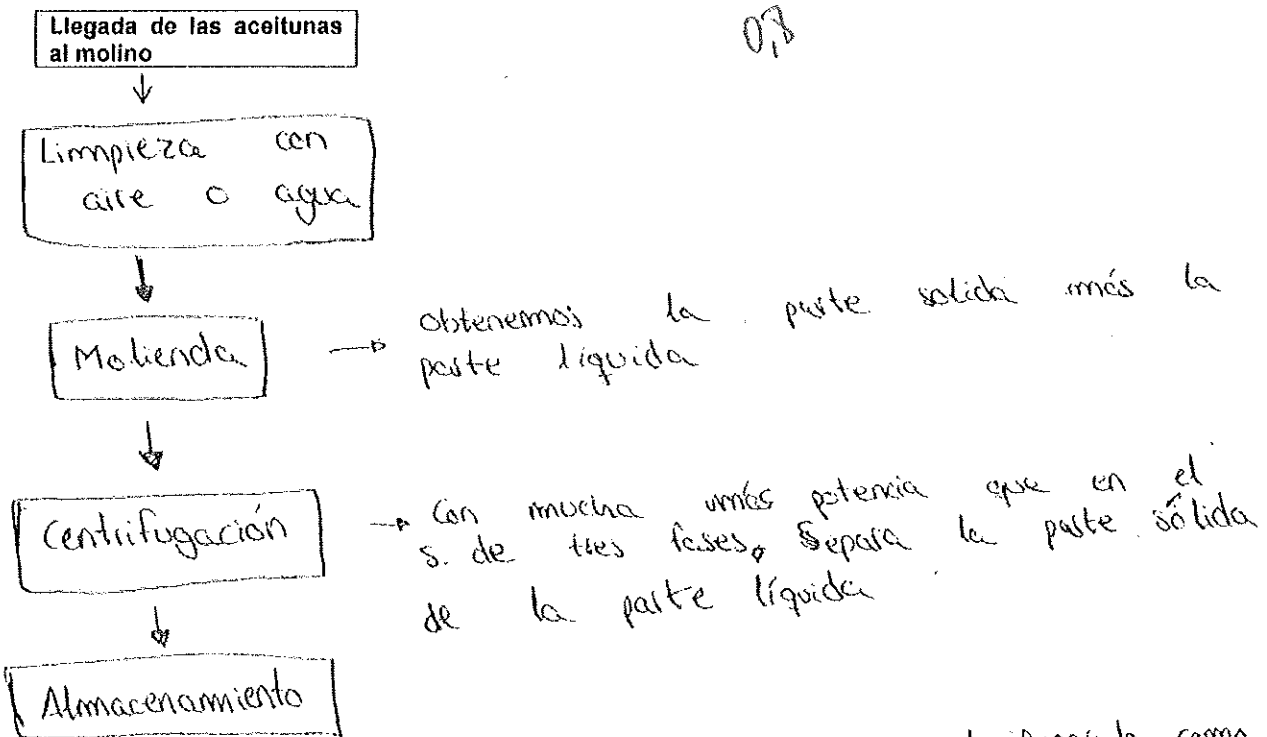 Llegada de las aceitunas
al molino
0,8
Limpieza con
aire o agua
Molienda
Obtenemos la parte solida más la
parte líquida
Centrifugación
Con mucha más potencia que en el
s. de tres fases, Separa la parte sólida
de la parte líquida
Almacenamiento
como